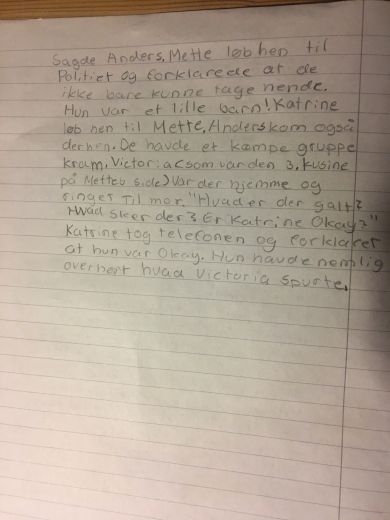 Sagde Anders. Mette løb hen til
Politiet og forklarede at de
ikke bare kunne tage hende.
Hun var et lille barn! Katrine
løb hen til Mette. Anders kom også
derhen. De havde et kæmpe gruppe
kram. Victoria (som var den 3. kusine
på Mettes side) Var der hjemme og
ringer til mor. "Hvad er der galt?
Hvad sker der? Er Katrine Okay?"
Katrine tog telefonen og forklaret
at hun var Okay. Hun havde nemlig
overhørt hvad Victoria spurte.